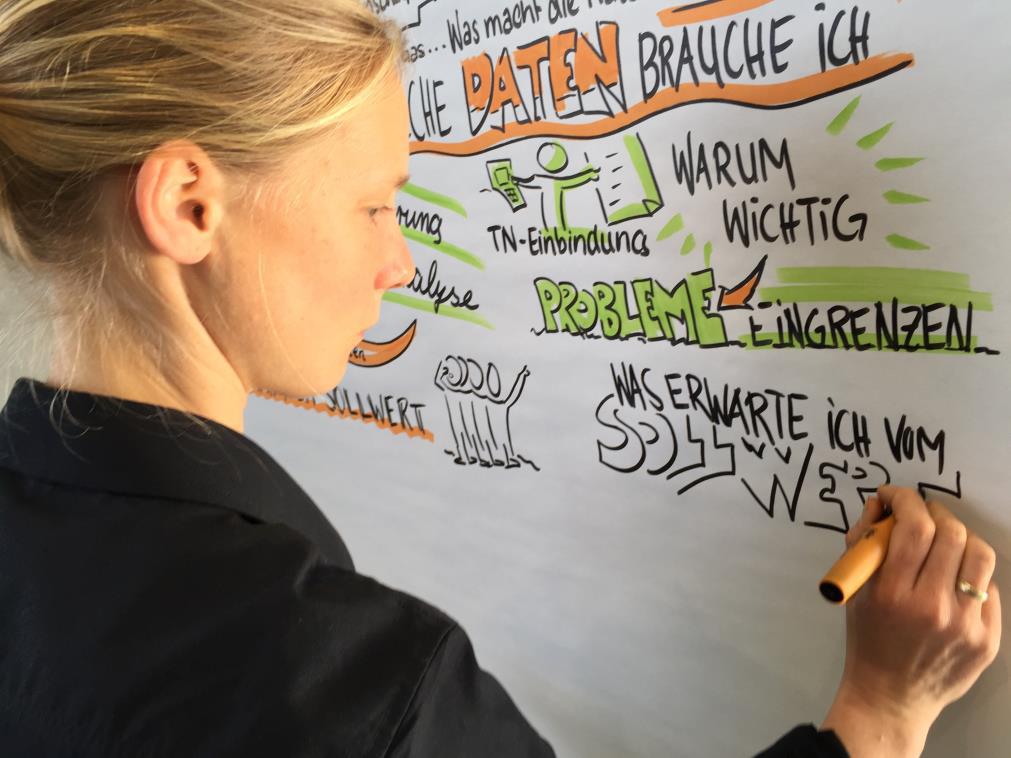 as... Was macht die
CHE DATEN BRAUCHE iCH
WARUM
WiCHTiG
TN-Einbindung
rung
alyse
PROBLEME EiNGRENZEN
en
SOLLWERT
WAS ERWARTE iCH VOM
SOLL WER